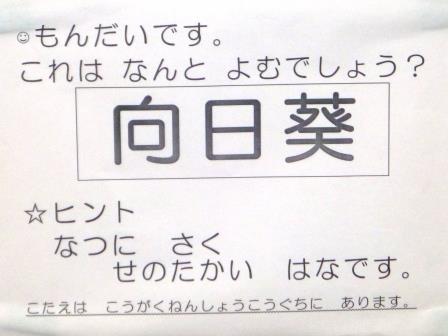 ☺もんだいです。
これは なんと よむでしょう？
向日葵
☆ヒント
なつに さく
せのたかい はなです。
こたえは こうがくねんしょうこうぐちに あります。